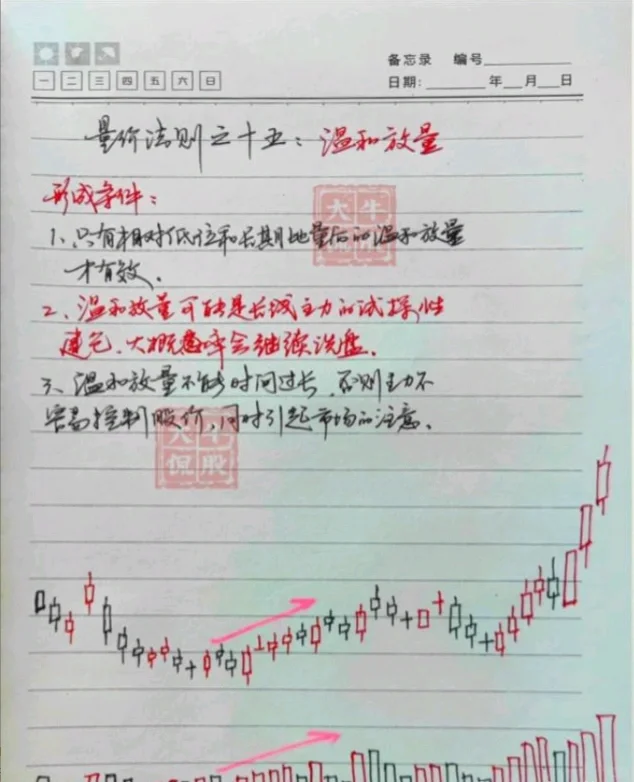 备忘录 编号
一 二 三 四 五 六 日
日期: 年 月 日
量价法则之十五:温和放量
形成条件:
1、只有相对低位和长期地量后的温和放量
才有效.
2、温和放量可能是长线主力的试探性
建仓.大概率会继续洗盘.
3、温和放量不能时间过长.否则主力不
容易控制股价,同时引起市场的注意.
大牛
侃股
大牛
侃股